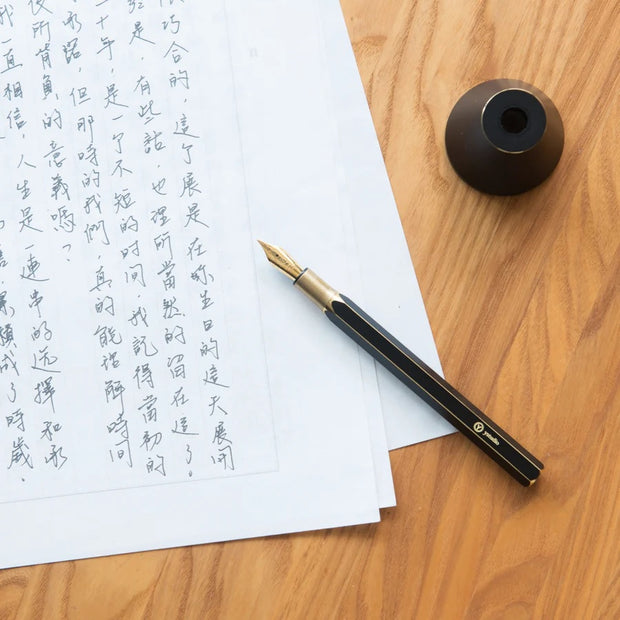 巧合的，這个展是在妳生日的這天展開
是，有些話，也理所當然的留在這了。
十年，是一个不短的時間，我記得當初的
承諾，但那時的我們，真的能解時間
後所背負的意義嗎？
我一直相信，人生是一連串的選擇和承
累積成了時歲。
ystudio